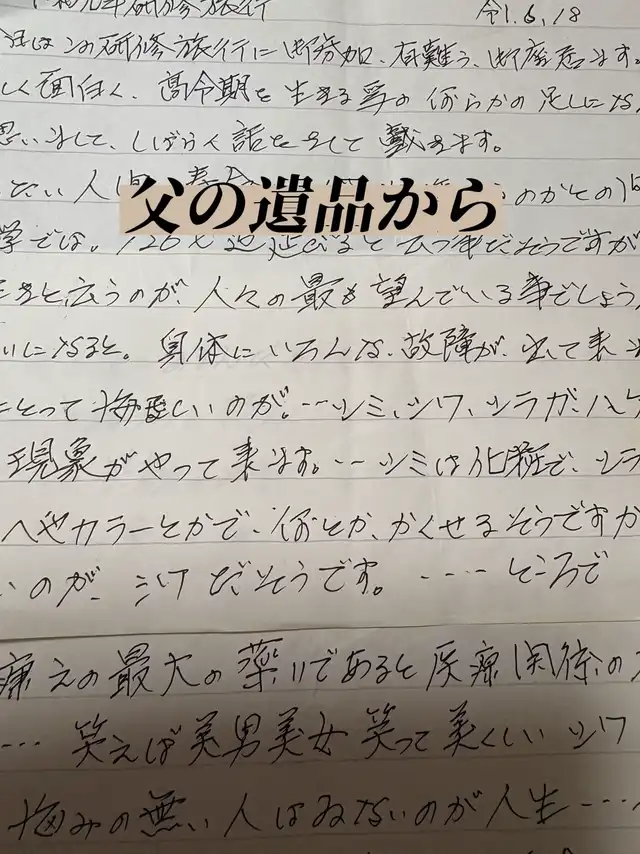 令和元年研修旅行 令1.6.18
はこの研修旅行に御参加、有難う、御座居ます。
しく面白く、高令期を生きる為の何らかの足しにな
思いまして、しばらく話をさして戴きます。
人間
父の遺品から
のかその
学では。120才迄延びると云う事だそうですが
生きと云うのが、人々の最も望んでいる事でしょう
になると。身体にいろんな、故障が、出て来
にとって悔しいのが。--シミ、シワ、シラガ、ハゲ
現象がやって来ます。--シミは化粧で、シラ
ヘヤカラーとかで、何とか、かくせるそうですが
いのが、シワだそうです。----ところで
康えの最大の薬りであると医療関係の
--- 笑えば美男美女笑って美くしいシワ
悩みの無い人はゐないのが人生----